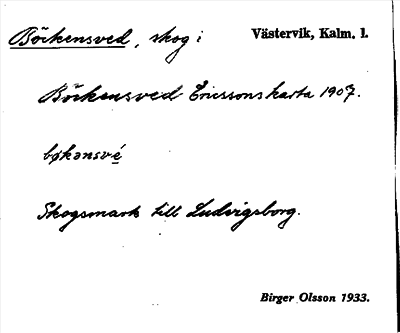 Böckensved, skog i Västervik, Kalm. l.
Böckensved Ericssons karta 1907.
bøkənsvé
Skogsmark till Ludvigsborg.
Birger Olsson 1933.